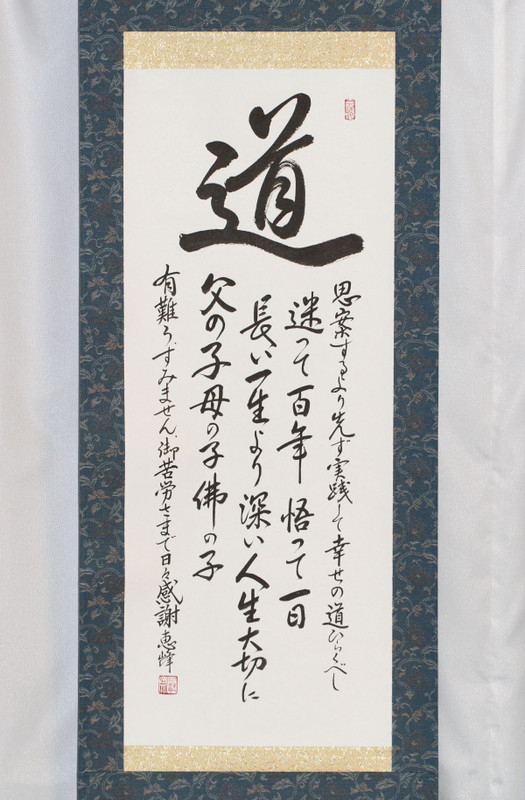 道
思案するより先ず実践して幸せの道ひらくべし
迷って百年 悟って一日
長い一生より深い人生大切に
父の子母の子佛の子
有難う、すみません、御苦労さまで日々感謝 恵峰